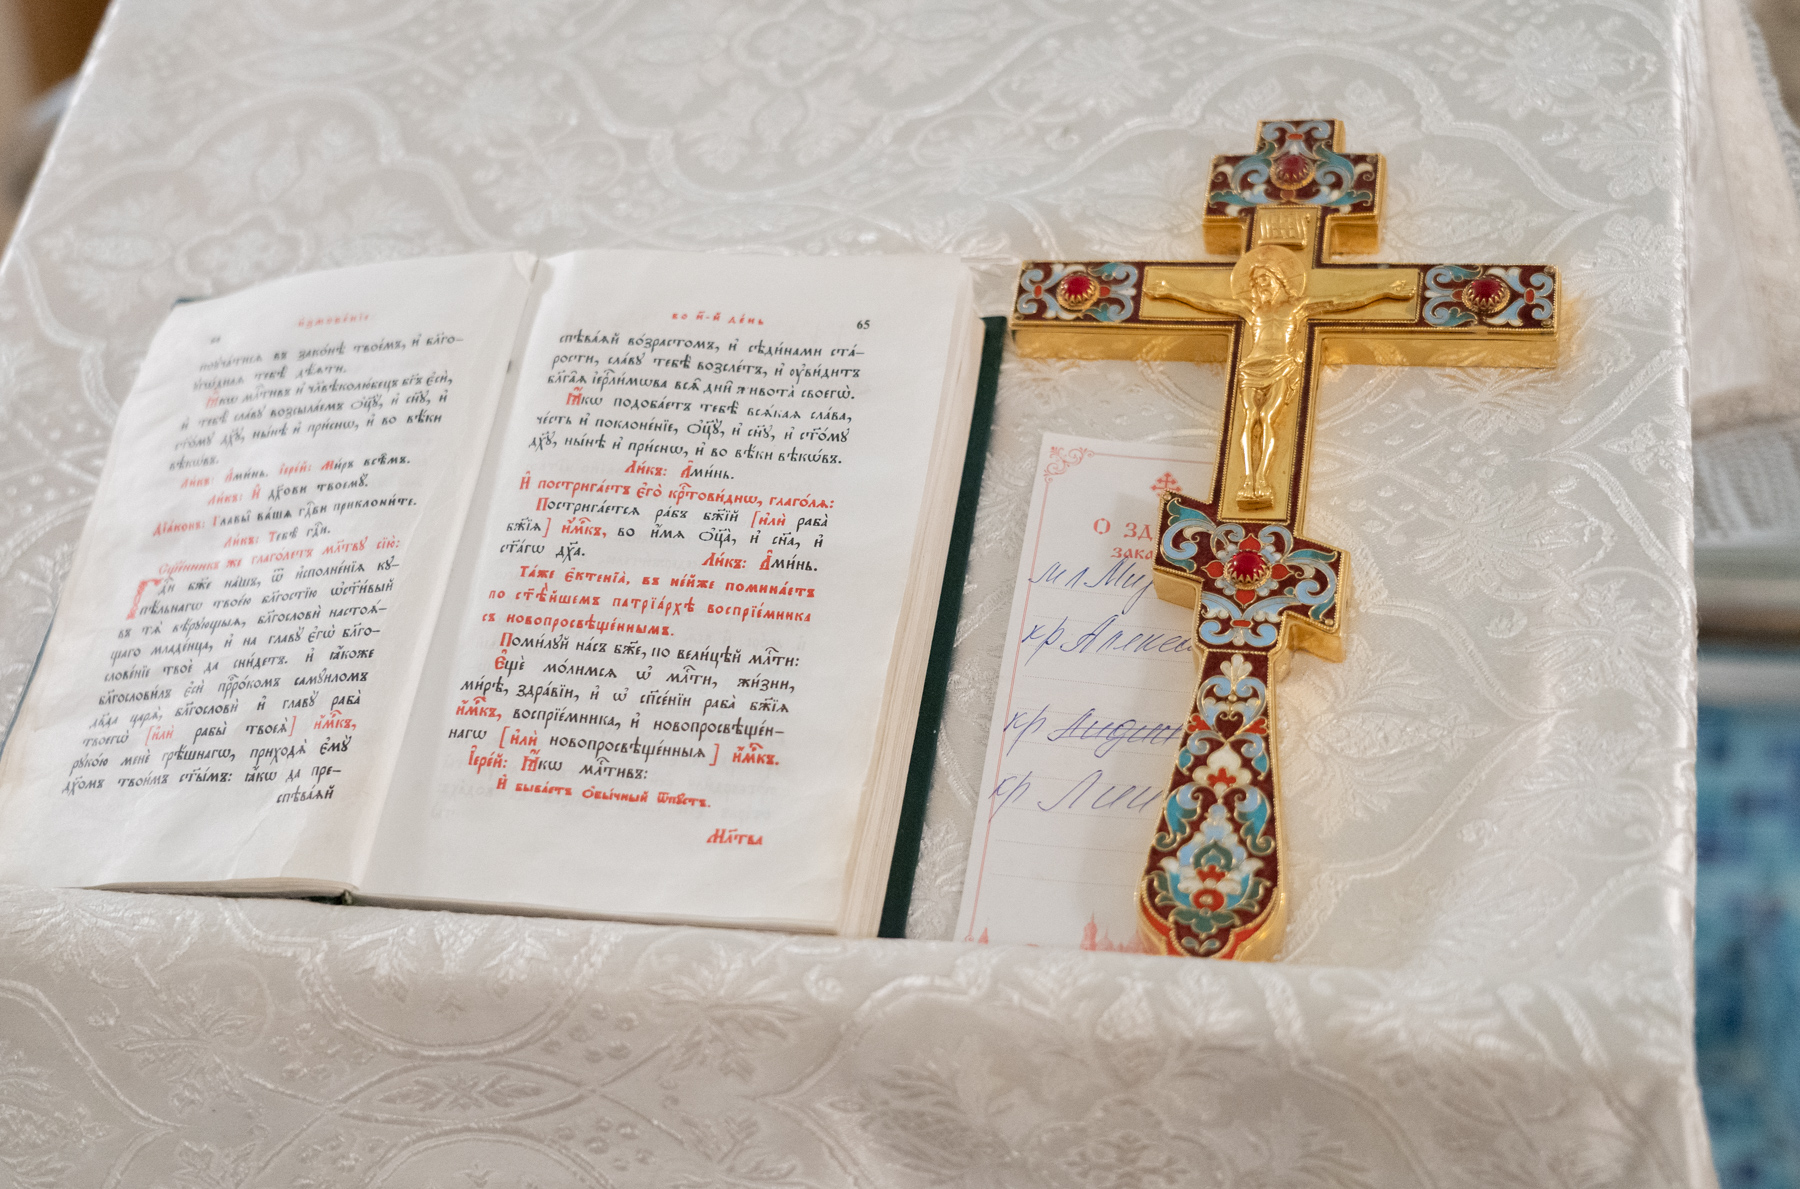 поꙋча́тисѧ въ зако́нѣ твое́мъ, и҆ бл҃го-
ᲂу҆гѡ́днаѧ тебѣ̀ дѣ́ѧти.
Ꙗ҆́кѡ млⷭ҇тивъ и҆ чл҃вѣколю́бецъ бг҃ъ є҆сѝ,
и҆ тебѣ̀ сла́вꙋ возсыла́емъ ѻ҆ц҃ꙋ̀, и҆ сн҃ꙋ, и҆
ст҃о́мꙋ дх҃ꙋ, ны́нѣ и҆ при́снѡ, и҆ во вѣ́ки
вѣкѡ́въ.
Ли́къ: А҆ми́нь. І҆ере́й: Ми́ръ всѣ̑мъ.
Ли́къ: И҆ дх҃ови твоемꙋ̀.
Дїа́конъ: Главы̑ ва́шѧ гдⷭ҇ви приклони́те.
Ли́къ: Тебѣ̀ гдⷭ҇и.
Сщ҃е́нникъ же глаго́летъ мл҃твꙋ сїю̀:
Гдⷭ҇и бж҃е на́шъ, ѿ и҆сполне́нїѧ кꙋ-
пѣ́льнагѡ твое́ю бл҃гостїю ѡ҆ст҃и́вый
въ тѧ̀ вѣ́рꙋющыѧ, бл҃гословѝ настоѧ́-
щаго младе́нца, и҆ на главꙋ̀ є҆гѡ̀ бл҃го-
слове́нїе твоѐ да сни́детъ. и҆ ꙗ҆́коже
бл҃гослови́лъ є҆сѝ прⷪ҇ро́комъ самꙋи́ломъ
дв҃да царѧ̀, бл҃гословѝ и҆ главꙋ̀ раба̀
твоегѡ̀ [и҆лѝ рабы̀ твоеѧ̀] и҆́мⷬ҇къ,
рꙋко́ю менє̀ грѣ́шнагѡ, приходѧ̀ є҆мꙋ̀
дх҃омъ твои́мъ ст҃ы́мъ: ꙗ҆́кѡ да пре-
спѣва́ѧй
во и҃-й де́нь 65
спѣва́ѧй во́зрастомъ, и҆ сѣди́нами ста́-
рости, сла́вꙋ тебѣ̀ возсле́тъ, и҆ ᲂу҆ви́дитъ
бл҃га̑ѧ і҆ерⷭ҇ли́мѡва всѧ̑ дни̑ живота̀ своегѡ̀.
Ꙗ҆́кѡ подоба́етъ тебѣ̀ всѧ́каѧ сла́ва,
че́сть и҆ поклоне́нїе, ѻ҆ц҃ꙋ̀, и҆ сн҃ꙋ, и҆ ст҃о́мꙋ
дх҃ꙋ, ны́нѣ и҆ при́снѡ, и҆ во вѣ́ки вѣкѡ́въ.
Ли́къ: А҆ми́нь.
И҆ пострига́етъ є҆го̀ крⷭ҇тови́днѡ, глаго́лѧ:
Пострига́етсѧ ра́бъ бж҃їй [и҆лѝ раба̀
бж҃їѧ] и҆́мⷬ҇къ, во и҆́мѧ ѻ҆ц҃а̀, и҆ сн҃а, и҆
ст҃а́гѡ дх҃а. Ли́къ: А҆ми́нь.
Та́же є҆ктенїа̀, въ не́йже помина́етъ
по ст҃ѣ́йшемъ патрїа́рхѣ воспрїе́мника
съ новопросвѣще́ннымъ.
Поми́лꙋй на́съ бж҃е, по вели́цѣй млⷭ҇ти:
Є҆щѐ мо́лимсѧ ѡ҆ млⷭ҇ти, жи́зни,
ми́рѣ, здра́вїи, и҆ ѡ҆ сп҃се́нїи раба̀ бж҃їѧ
и҆́мⷬ҇къ, воспрїе́мника, и҆ новопросвѣще́н-
нагѡ [и҆лѝ новопросвѣще́нныѧ] и҆́мⷬ҇къ.
І҆ере́й: Ꙗ҆́кѡ млⷭ҇тивъ:
И҆ быва́етъ ѻ҆бы́чный ѿпꙋ́стъ.
Мл҃тва
О ЗД
зака
мл
кр Алекс
кр
кр